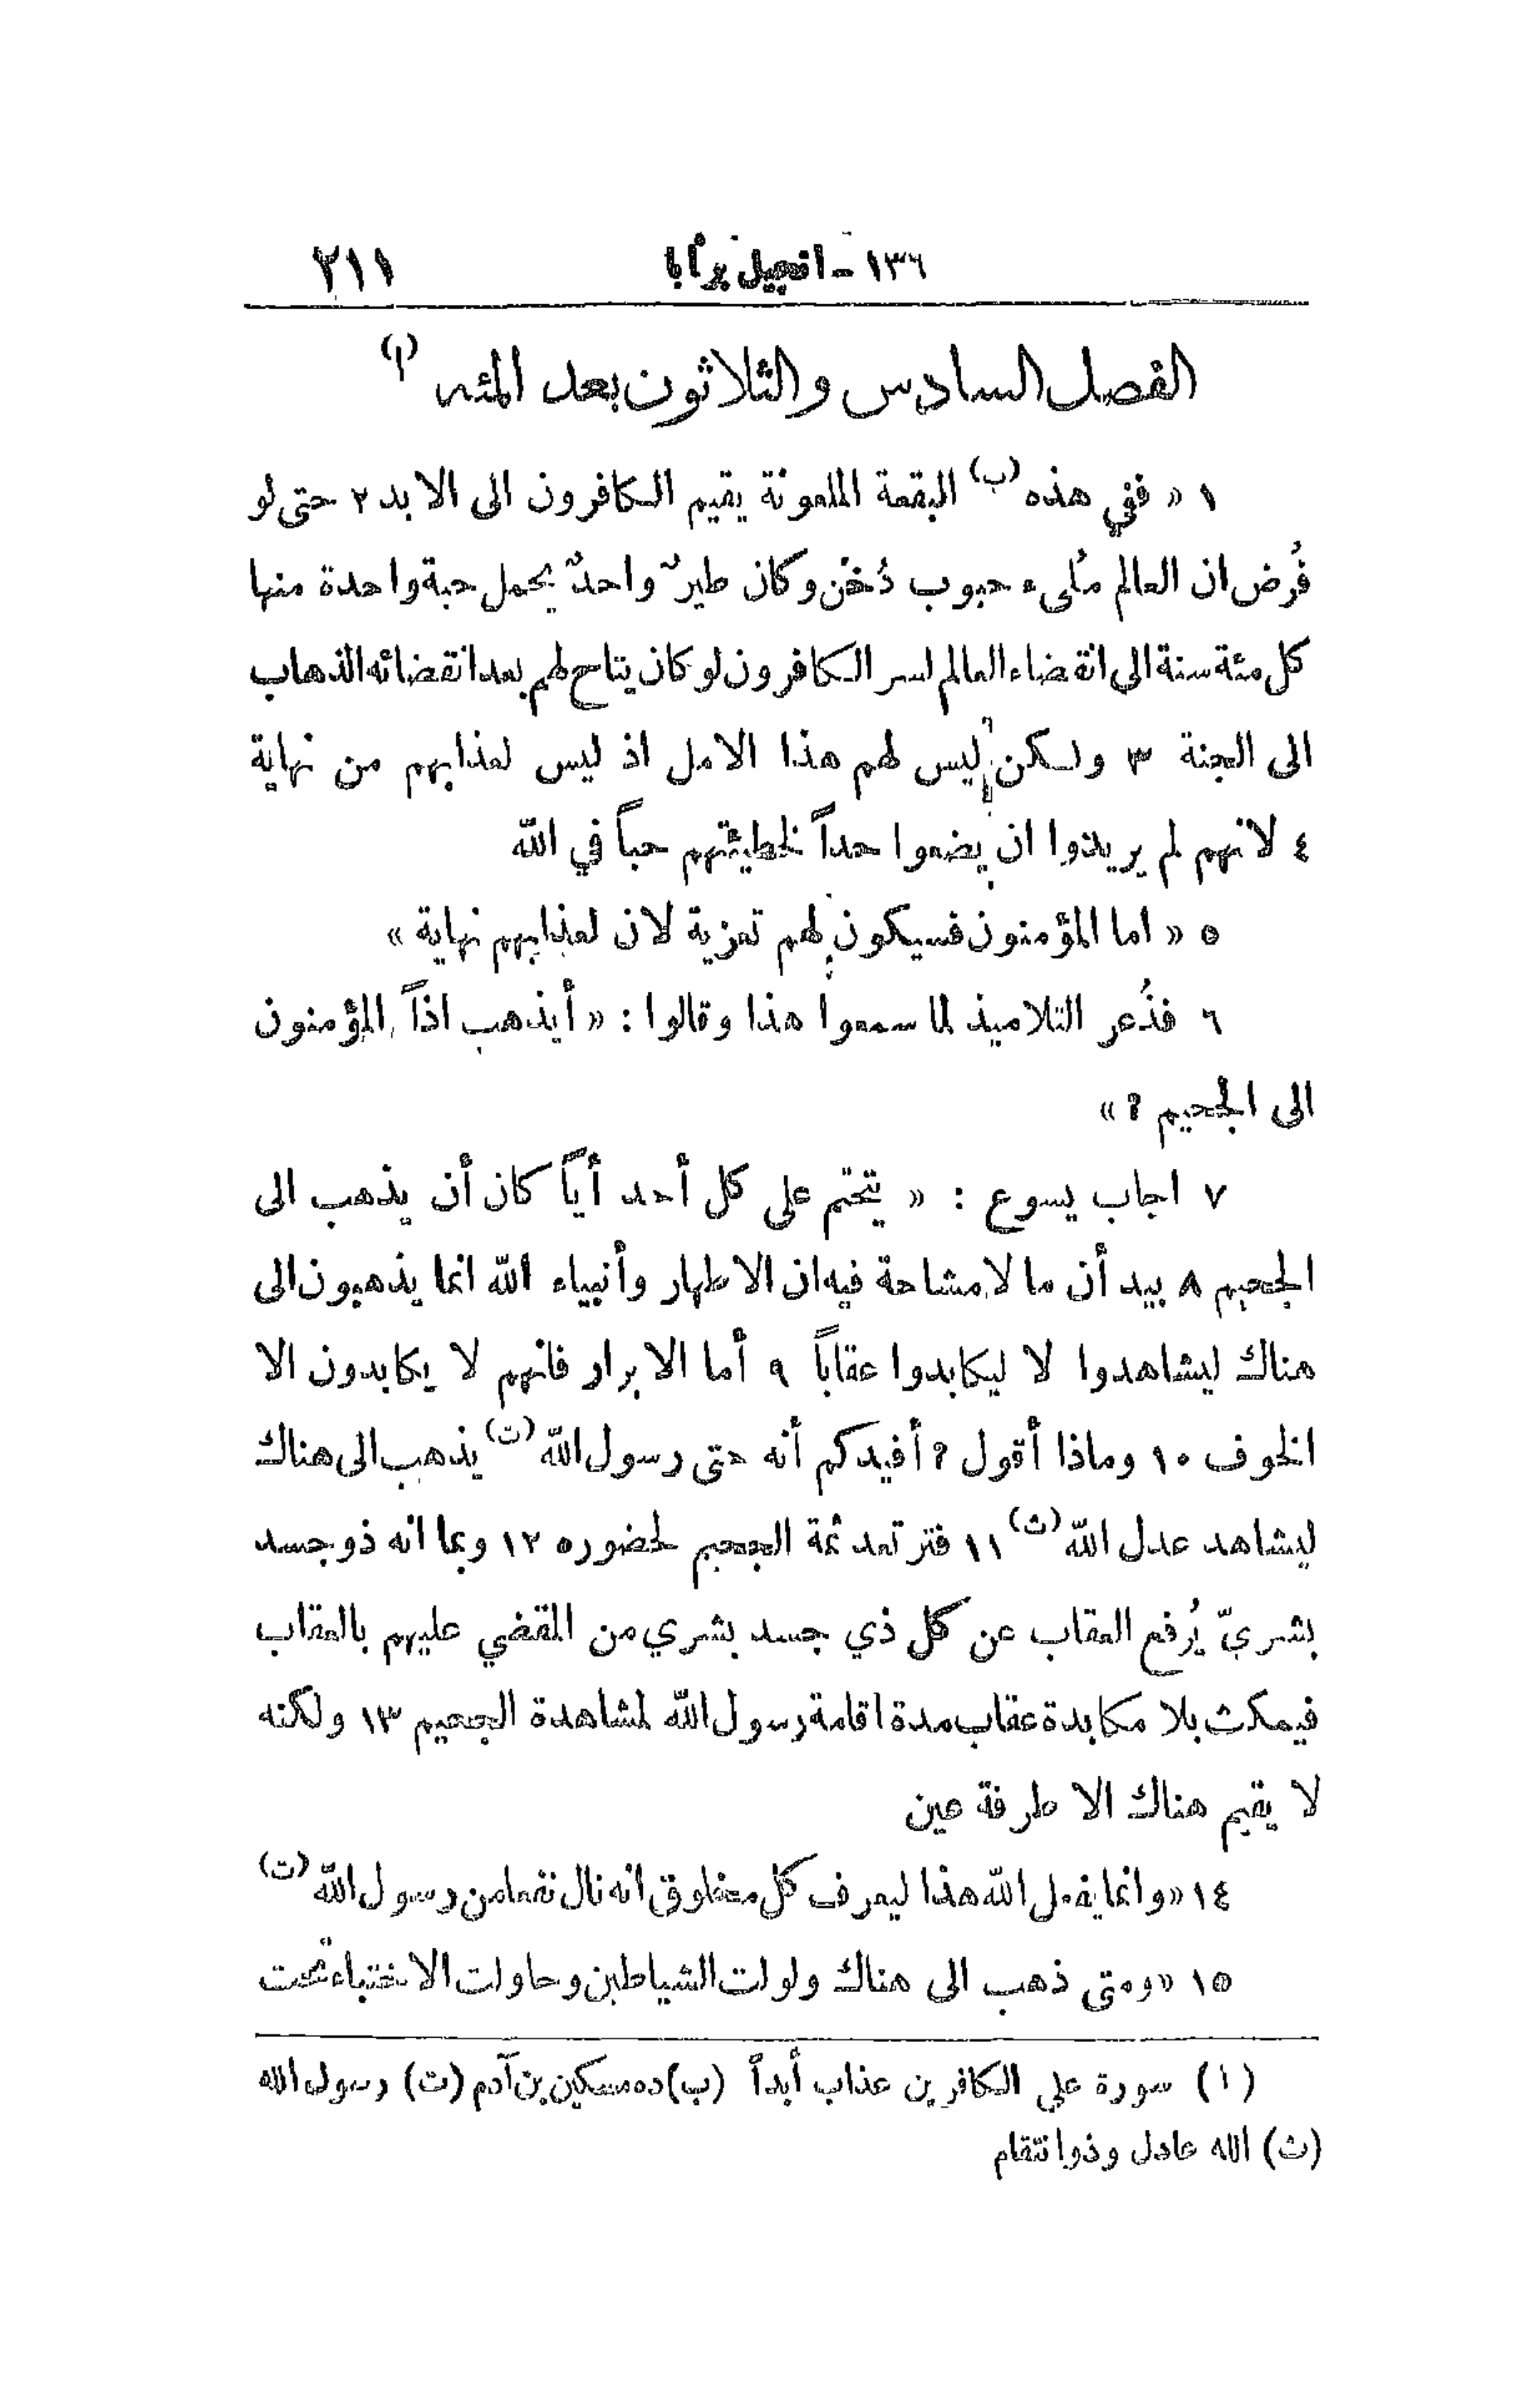 ١٣٦ - انجيل برنابا ٢١١
الفصل السادس والثلاثون بعد المئه (ا)
١ « ففي هذه (ب) البقعة الملعونة يقيم الكافرون الى الابد ٢ حتى لو
فُرض ان العالم مُلىء حبوب دُخن وكان طيرٌ واحدٌ يحمل حبة واحدة منها
كل مئة سنة الى انقضاء العالم لسر الكافرون لو كان يتاح لهم بعد انقضائه الذهاب
الى الجنة ٣ ولكن ليس لهم هذا الامل اذ ليس لعذابهم من نهاية
٤ لانهم لم يريدوا ان يضعوا حداً لخطيئتهم حباً في الله
٥ « اما المؤمنون فسيكون لهم تعزية لان لعذابهم نهاية »
٦ فذُعر التلاميذ لما سمعوا هذا وقالوا : « أيذهب اذاً المؤمنون
الى الجحيم ؟ »
٧ اجاب يسوع : « يتحتّم على كل أحد أياً كان أن يذهب الى
الجحيم ٨ بيد أن ما لا مشاحة فيه ان الاطهار وأنبياء الله انما يذهبون الى
هناك ليشاهدوا لا ليكابدوا عقاباً ٩ أما الابرار فانهم لا يكابدون الا
الخوف ١٠ وماذا أقول ؟ أفيدكم أنه حتى رسول الله (ت) يذهب الى هناك
ليشاهد عدل الله (ث) ١١ فترتعد ثمة الجحيم لحضوره ١٢ وبما انه ذو جسد
بشريّ يُرفع العقاب عن كل ذي جسد بشري من المقضي عليهم بالعقاب
فيمكث بلا مكابدة عقاب مدة اقامة رسول الله لمشاهدة الجحيم ١٣ ولكنه
لا يقيم هناك الا طرفة عين
١٤ « وانما يفعل الله هذا ليعرف كل مخلوق انه نال نفعا من رسول الله (ت)
١٥ « ومتى ذهب الى هناك ولولت الشياطين وحاولت الاختباء تحت
(ا) سورة على الكافرين عذاب أبداً (ب) ده مسكين بن آدم (ت) رسول الله
(ث) الله عادل وذو انتقام